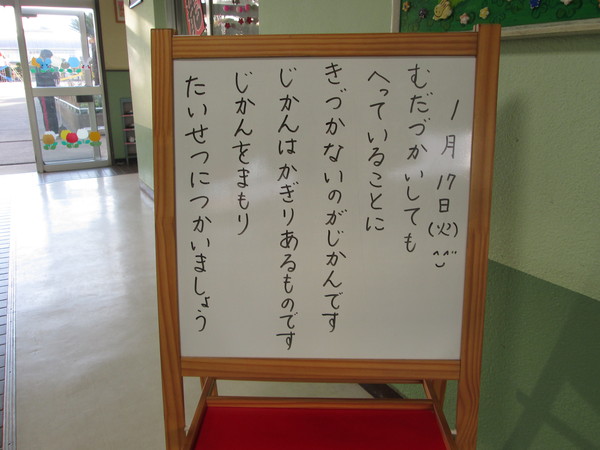 1月17日(火)
むだづかいしても
へっていることに
きづかないのがじかんです
じかんはかぎりあるものです
じかんをまもり
たいせつにつかいましょう